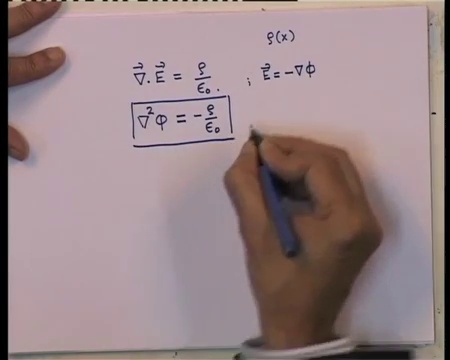 ρ(x)
∇⃗.E⃗ = ρ/ε₀. ; E⃗ = -∇φ
∇²φ = -ρ/ε₀